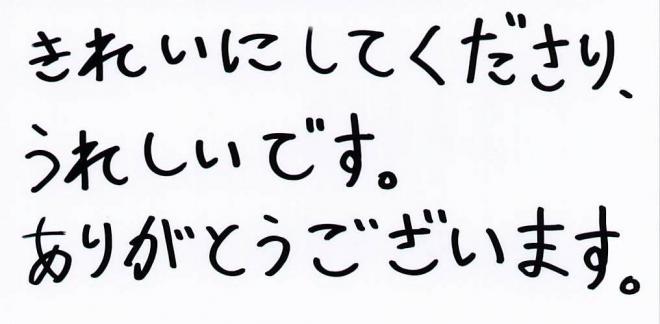 きれいにしてくださり、
うれしいです。
ありがとうございます。